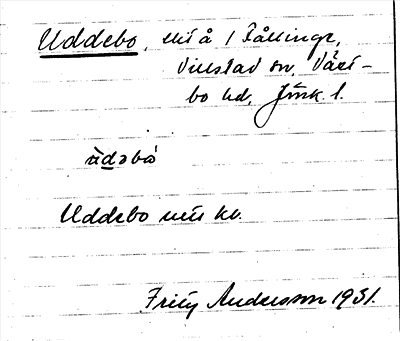 Uddebo, utj å 1 Fållinge,
Villstad sn, Väst-
bo hd, Jönk. l.
ùdəbò
Uddebo utj kb.
Fritz Andersson 1931.